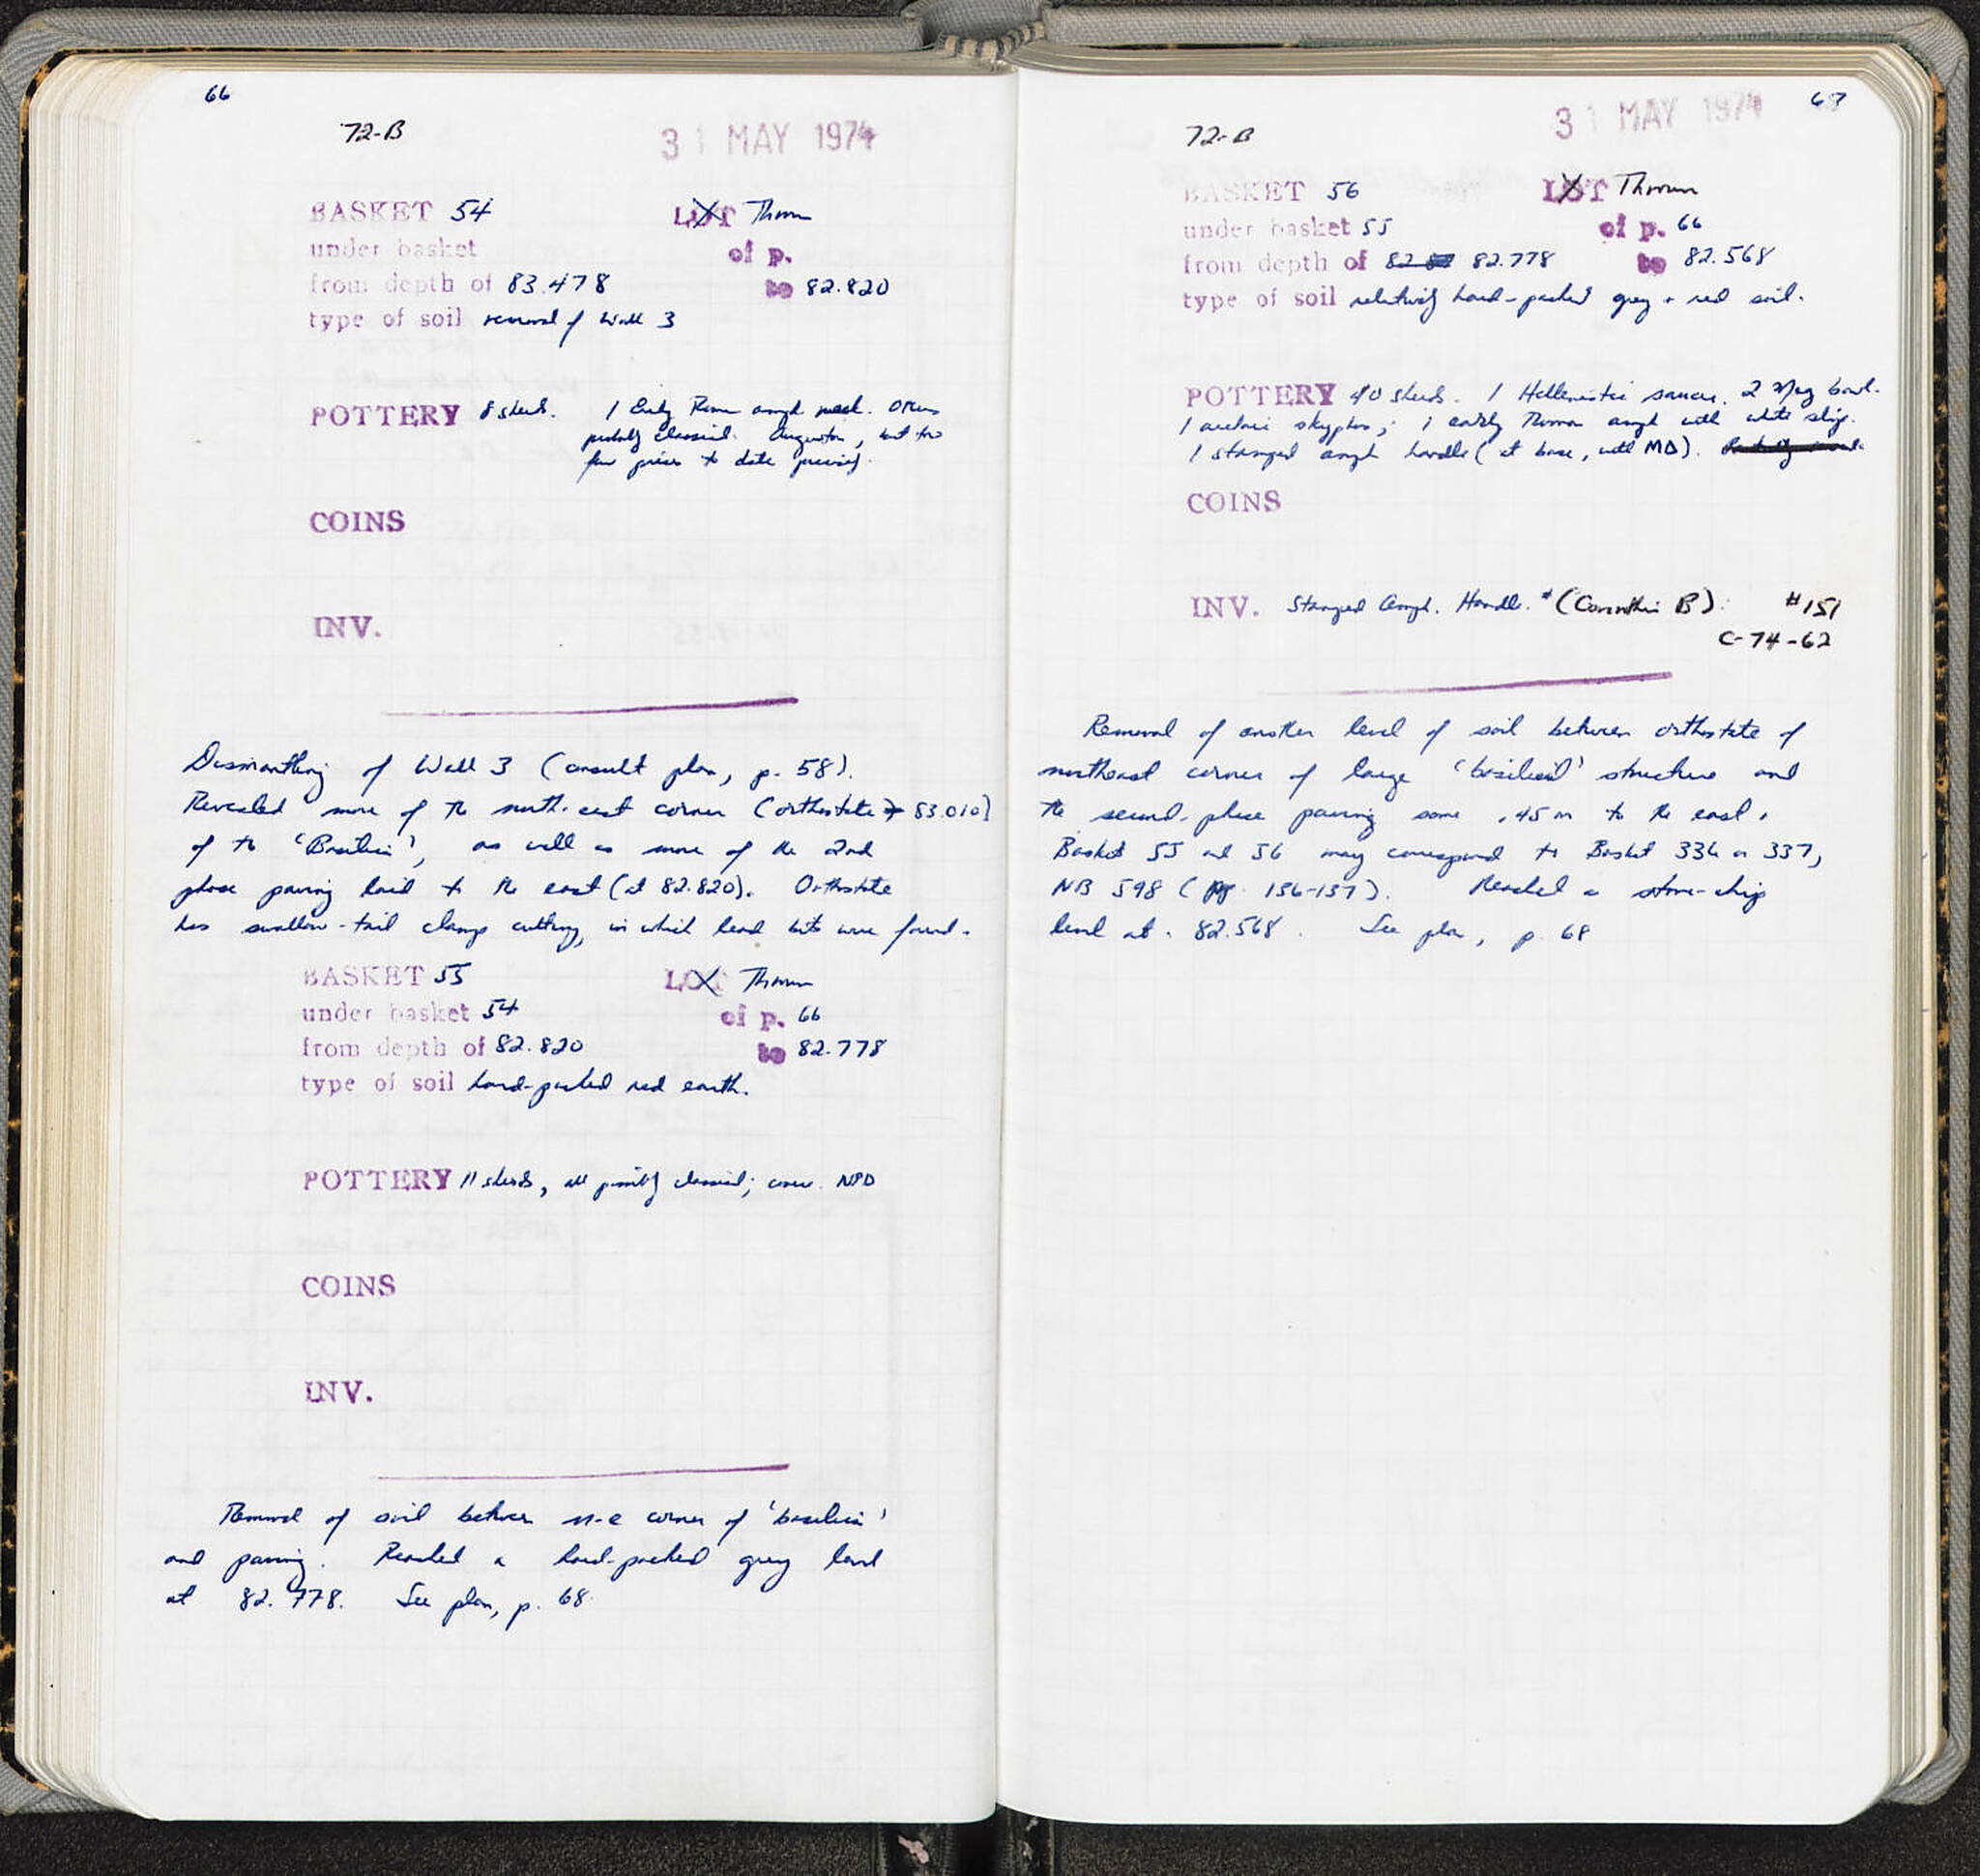 66
72-B
31 MAY 1974
BASKET 54 LOT Thrown
under basket of p.
from depth of 83.478 to 82.820
type of soil removal of Wall 3
POTTERY 8 sherds. 1 Early Roman amph neck. Others
probably classical. Augustan, but too
few pieces to date precisely.
COINS
INV.
Dismantling of Wall 3 (consult plan, p. 58).
Revealed more of the north-east corner (orthostate 83.010)
of the 'Basilica', as well as more of the 2nd
phase paving laid to the east (at 82.820). Orthostate
has swallow-tail clamp cutting, in which lead bits were found.
BASKET 55 LOT Thrown
under basket 54 of p. 66
from depth of 82.820 to 82.778
type of soil hard-packed red earth.
POTTERY 11 sherds, all possibly classical; coarse. NPD
COINS
INV.
Removal of soil between n-e corner of 'basilica'
and paving. Reached a hard-packed grey level
at 82.778. See plan, p. 68
67
72-B
31 MAY 1974
BASKET 56 LOT Thrown
under basket 55 of p. 66
from depth of 82.778 to 82.568
type of soil relatively hard-packed grey + red soil.
POTTERY 40 sherds. 1 Hellenistic saucer. 2 Meg bowl.
1 archaic skyphos; 1 early Roman amph with white slip.
1 stamped amph handle (at base, with MD).
COINS
INV. Stamped Amph. Handle. * (Corinthian B). #151
C-74-62
Removal of another level of soil between orthostate of
northeast corner of large 'basilical' structure and
the second-phase paving some .45 m to the east.
Basket 55 and 56 may correspond to Basket 336 or 337,
NB 598 (pp. 136-137). Reached a stone-chip
level at 82.568. See plan, p. 68